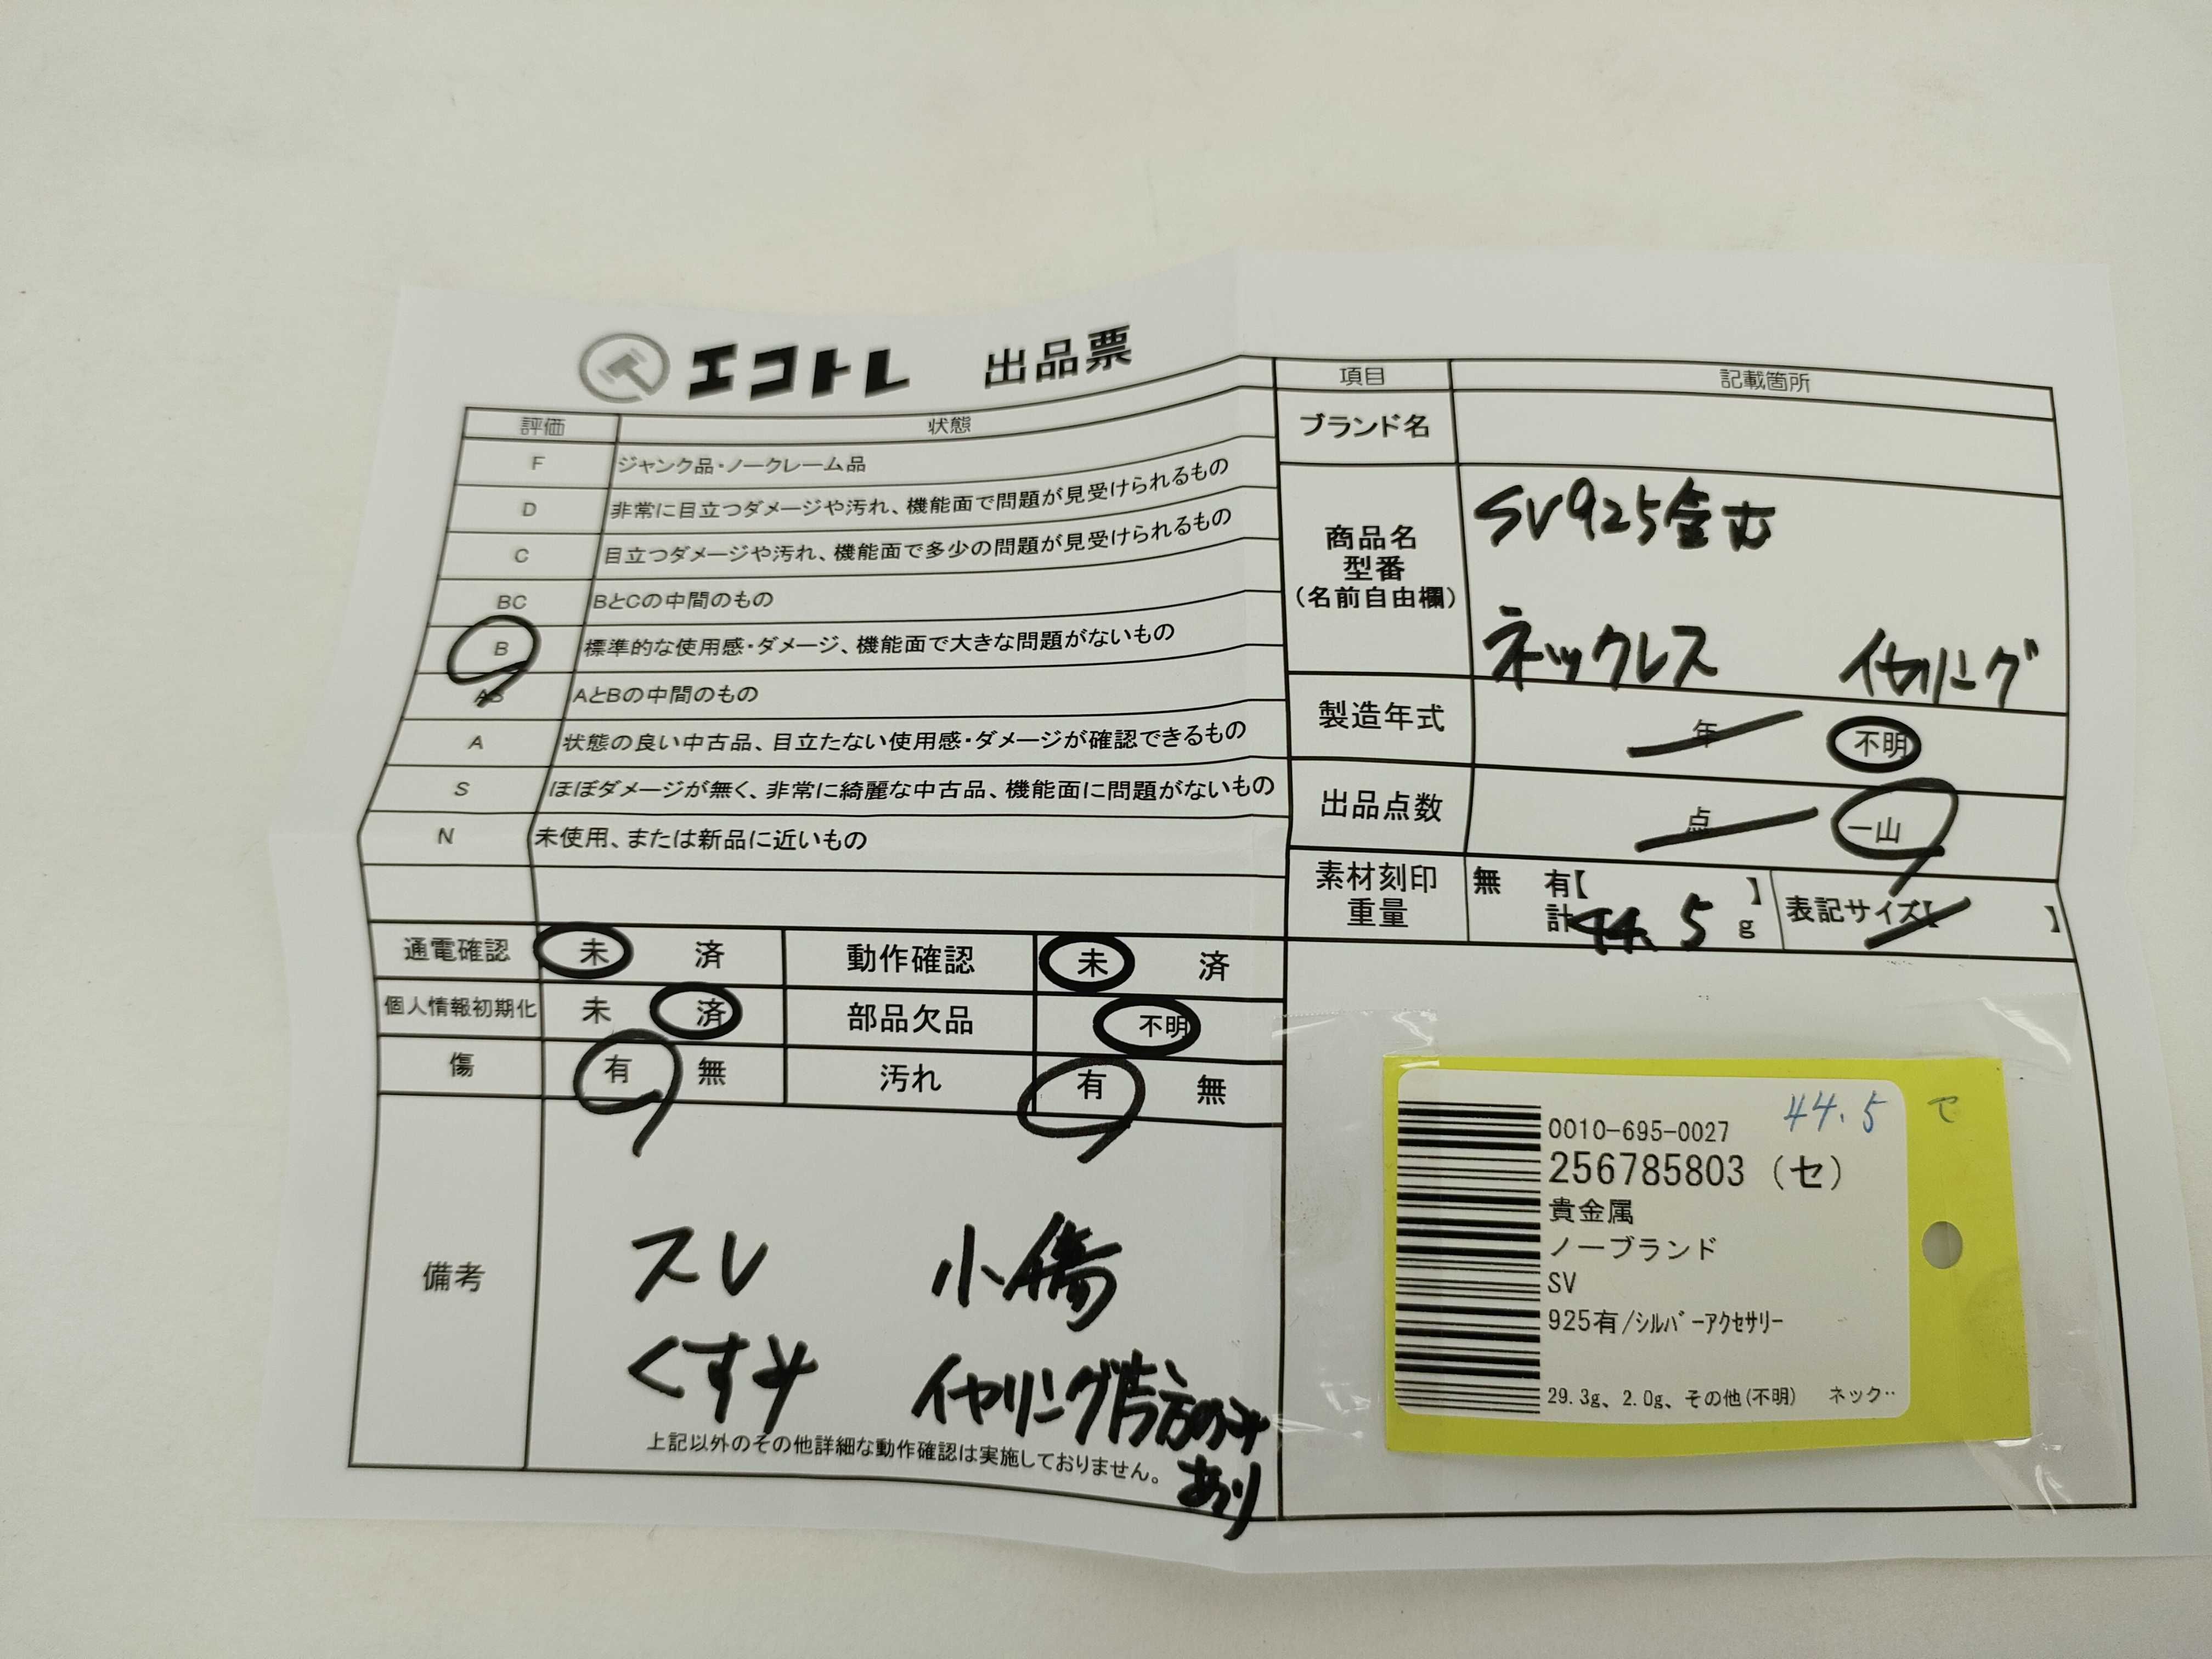 エコトレ 出品票
評価 状態
F ジャンク品・ノークレーム品
D 非常に目立つダメージや汚れ、機能面で問題が見受けられるもの
C 目立つダメージや汚れ、機能面で多少の問題が見受けられるもの
BC BとCの中間のもの
B 標準的な使用感・ダメージ、機能面で大きな問題がないもの
AB AとBの中間のもの
A 状態の良い中古品、目立たない使用感・ダメージが確認できるもの
S ほぼダメージが無く、非常に綺麗な中古品、機能面に問題がないもの
N 未使用、または新品に近いもの
通電確認 未 済 動作確認 未 済
個人情報初期化 未 済 部品欠品 不明
傷 有 無 汚れ 有 無
備考
スレ 小傷
くすみ イヤリング片方のみ
あり
上記以外のその他詳細な動作確認は実施しておりません。
項目 記載箇所
ブランド名
商品名
型番
(名前自由欄)
SV925含む
ネックレス イヤリング
製造年式 年 不明
出品点数 点 一山
素材刻印 無 有【 】
重量 計44.5g
表記サイズ【 】
44.5 セ
0010-695-0027
256785803 (セ)
貴金属
ノーブランド
SV
925有/ｼﾙﾊﾞｰｱｸｾｻﾘｰ
29.3g、2.0g、その他(不明) ネック‥